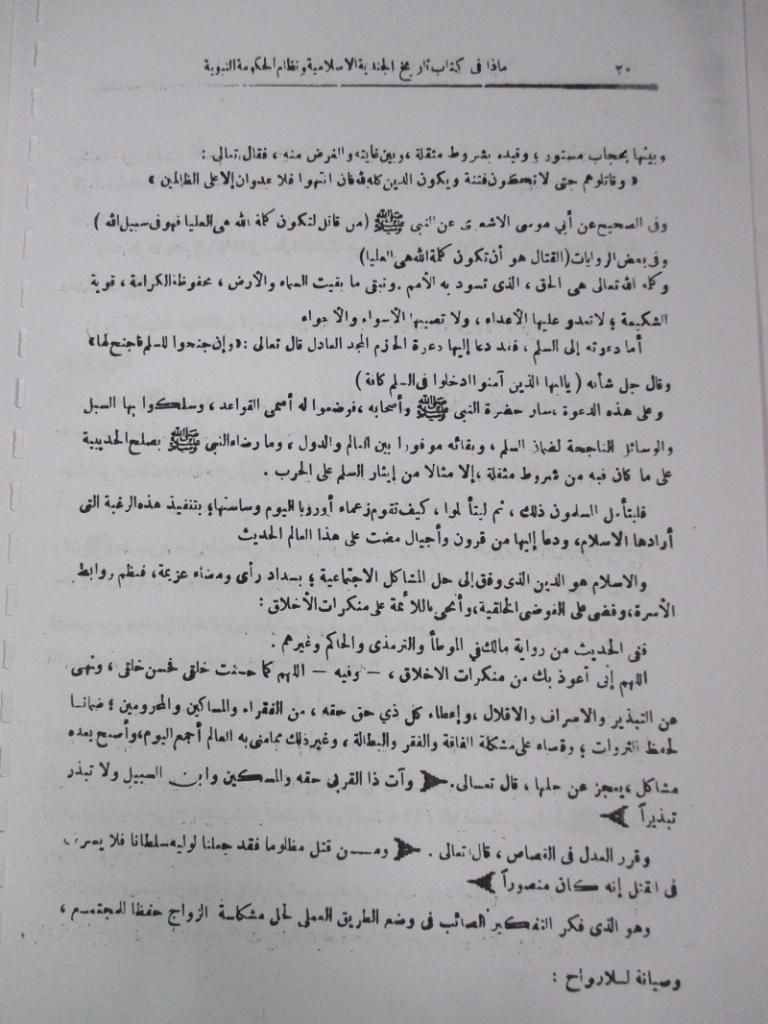 ٢٠ ماذا فى كتاب تاريخ الجندية الاسلامية ونظام الحكومة النبوية
وبينها بحجاب مستور ؛ وقيده بشروط مثقلة ، وبين غايته والغرض منه ، فقال تعالى :
« وقاتلوهم حتى لا تكون فتنة ويكون الدين كله لله فان انتهوا فلا عدوان إلا على الظالمين »
وفى الصحيح عن أبي موسى الاشعرى عن النبى ﷺ (من قاتل لتكون كلمة الله هى العليا فهو فى سبيل الله )
وفى بعض الروايات (القتال هو أن تكون كلمة الله هى العليا)
وكلمة الله تعالى هى الحق ، الذى تسود به الأمم . وتبقى ما بقيت السماء والأرض ، محفوظة الكرامة ، قوية
الشكيمة ؛ لا تعدو عليها الأعداء ، ولا تصيبها الأسواء والأجواء
أما دعوته إلى السلم ، فقد دعا إليها دعوة الحازم المجد العادل قال تعالى : «وإن جنحوا للسلم فاجنح لها»
وقال جل شأنه ( ياأيها الذين آمنوا ادخلوا فى السلم كافة )
وعلى هذه الدعوة ، سار حضرة النبى ﷺ وأصحابه ، فوضعوا له أسمى القواعد ، وسلكوا بها السبل
والوسائل الناجحة لضمان السلم ، وبقائه موفورا بين العالم والدول ، وما رضاء النبي ﷺ بصلح الحديبية
على ما كان فيه من شروط مثقلة ، إلا مثالا من إيثار السلم على الحرب .
فليتأمل المسلمون ذلك ، ثم ليتأملوا ، كيف تقوم زعماء أوروبا اليوم وساستها ؛ بتنفيذ هذه الرغبة التى
أرادها الاسلام ، ودعا إليها من قرون وأجيال مضت على هذا العالم الحديث
والاسلام هو الدين الذى وفق إلى حل المشاكل الاجتماعية ؛ بسداد رأى ومضاء عزيمة ، فنظم روابط
الأسرة ، وقضى على الفوضى الخلقية ، وأنحى باللائمة على منكرات الأخلاق :
ففى الحديث من رواية مالك فى الموطأ والترمذى والحاكم وغيرهم .
اللهم إنى أعوذ بك من منكرات الاخلاق ، — وفيه — اللهم كما حسنت خلقى فحسن خلقى ، ونهى
عن التبذير والاسراف والاقلال ، وإعطاء كل ذي حق حقه ، من الفقراء والمساكين والمحرومين ؛ ضمانا
لحفظ الثروات ؛ وقضاء على مشكلة الفاقة والفقر والبطالة ، وغير ذلك مما منى به العالم أجمع اليوم ، وأصبح بعده
مشاكل ، يعجز عن حلها ، قال تعالى . ﴿ وآت ذا القربى حقه والمسكين وابن السبيل ولا تبذر
تبذيراً ﴾
وقرر العدل فى القصاص ، قال تعالى . ﴿ ومن قتل مظلوما فقد جعلنا لوليه سلطانا فلا يسرف
فى القتل إنه كان منصوراً ﴾
وهو الذى فكر التفكير الصائب فى وضع الطريق العملى لحل مشكلة الزواج حفظا للمجتمع ،
وصيانة للارواح :